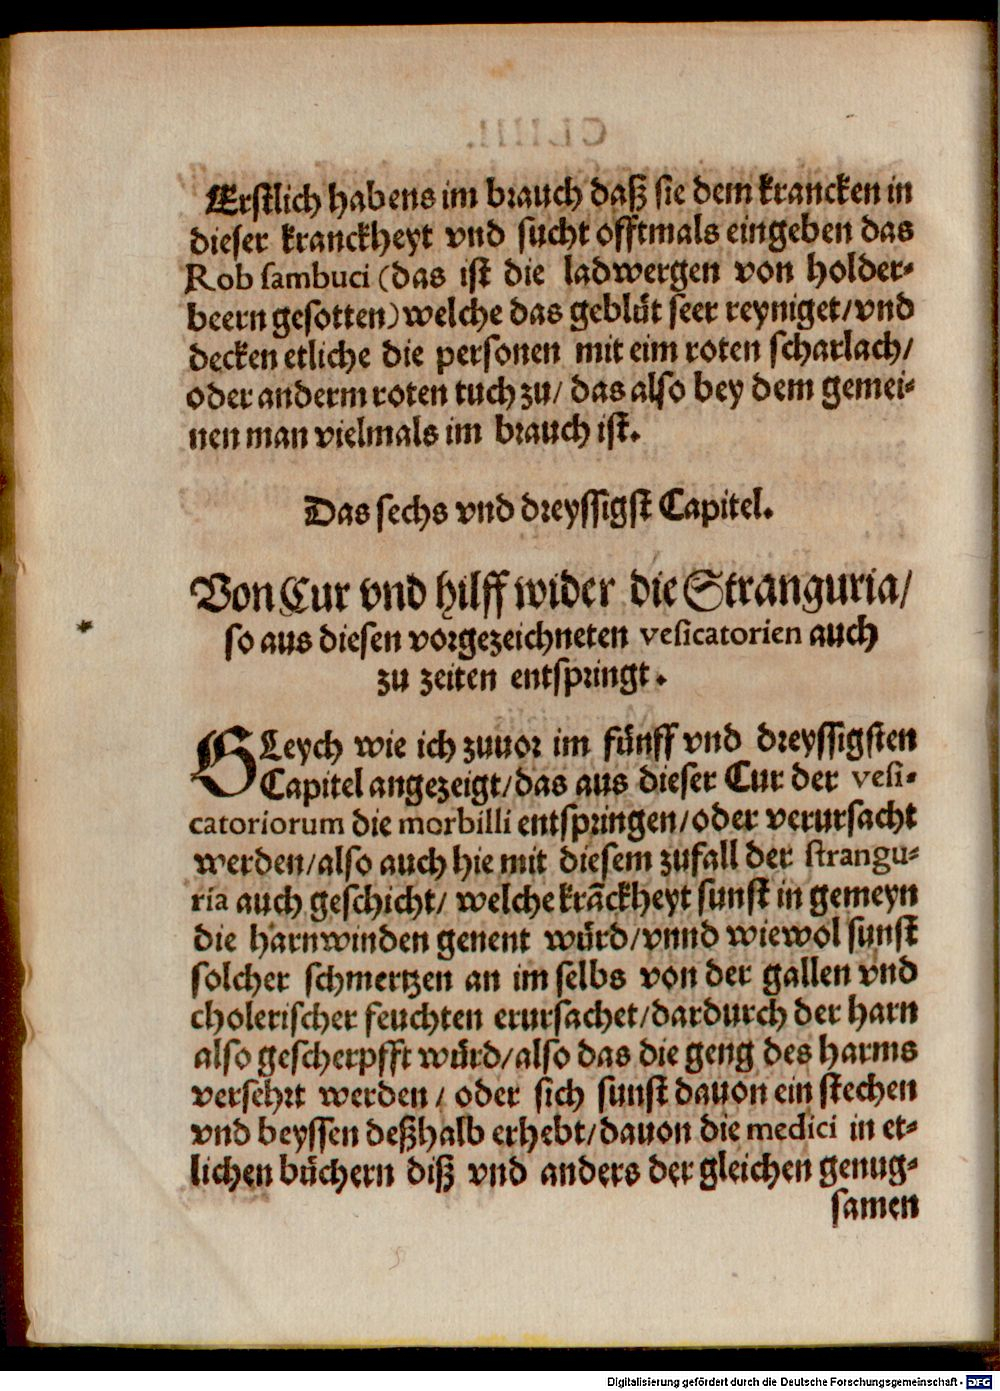 Erstlich habens im brauch daß sie dem krancken in
dieser kranckheyt vnd sucht offtmals eingeben das
Rob sambuci (das ist die ladwergen von holder-
beern gesotten) welche das geblüt seer reyniget/vnd
decken etliche die personen mit eim roten scharlach/
oder anderm roten tuch zu/ das also bey dem gemei-
nen man vielmals im brauch ist.
Das sechs vnd dreyssigst Capitel.
Von Cur vnd hilff wider die Stranguria/
so aus diesen vorgezeichneten vesicatorien auch
zu zeiten entspringt.
GLeych wie ich zuuor im fünff vnd dreyssigsten
Capitel angezeigt/das aus dieser Cur der vesi-
catoriorum die morbilli entspringen/oder verursacht
werden/also auch hie mit diesem zufall der strangu-
ria auch geschicht/ welche krāckheyt sunst in gemeyn
die harnwinden genent würd/vnnd wiewol sunst
solcher schmertzen an im selbs von der gallen vnd
cholerischer feuchten erursachet/dardurch der harn
also gescherpfft würd/also das die geng des harms
versehrt werden/ oder sich sunst dauon ein stechen
vnd beyssen deßhalb erhebt/dauon die medici in et-
lichen büchern diß vnd anders der gleichen genug-
samen
Digitalisierung gefördert durch die Deutsche Forschungsgemeinschaft - DFG